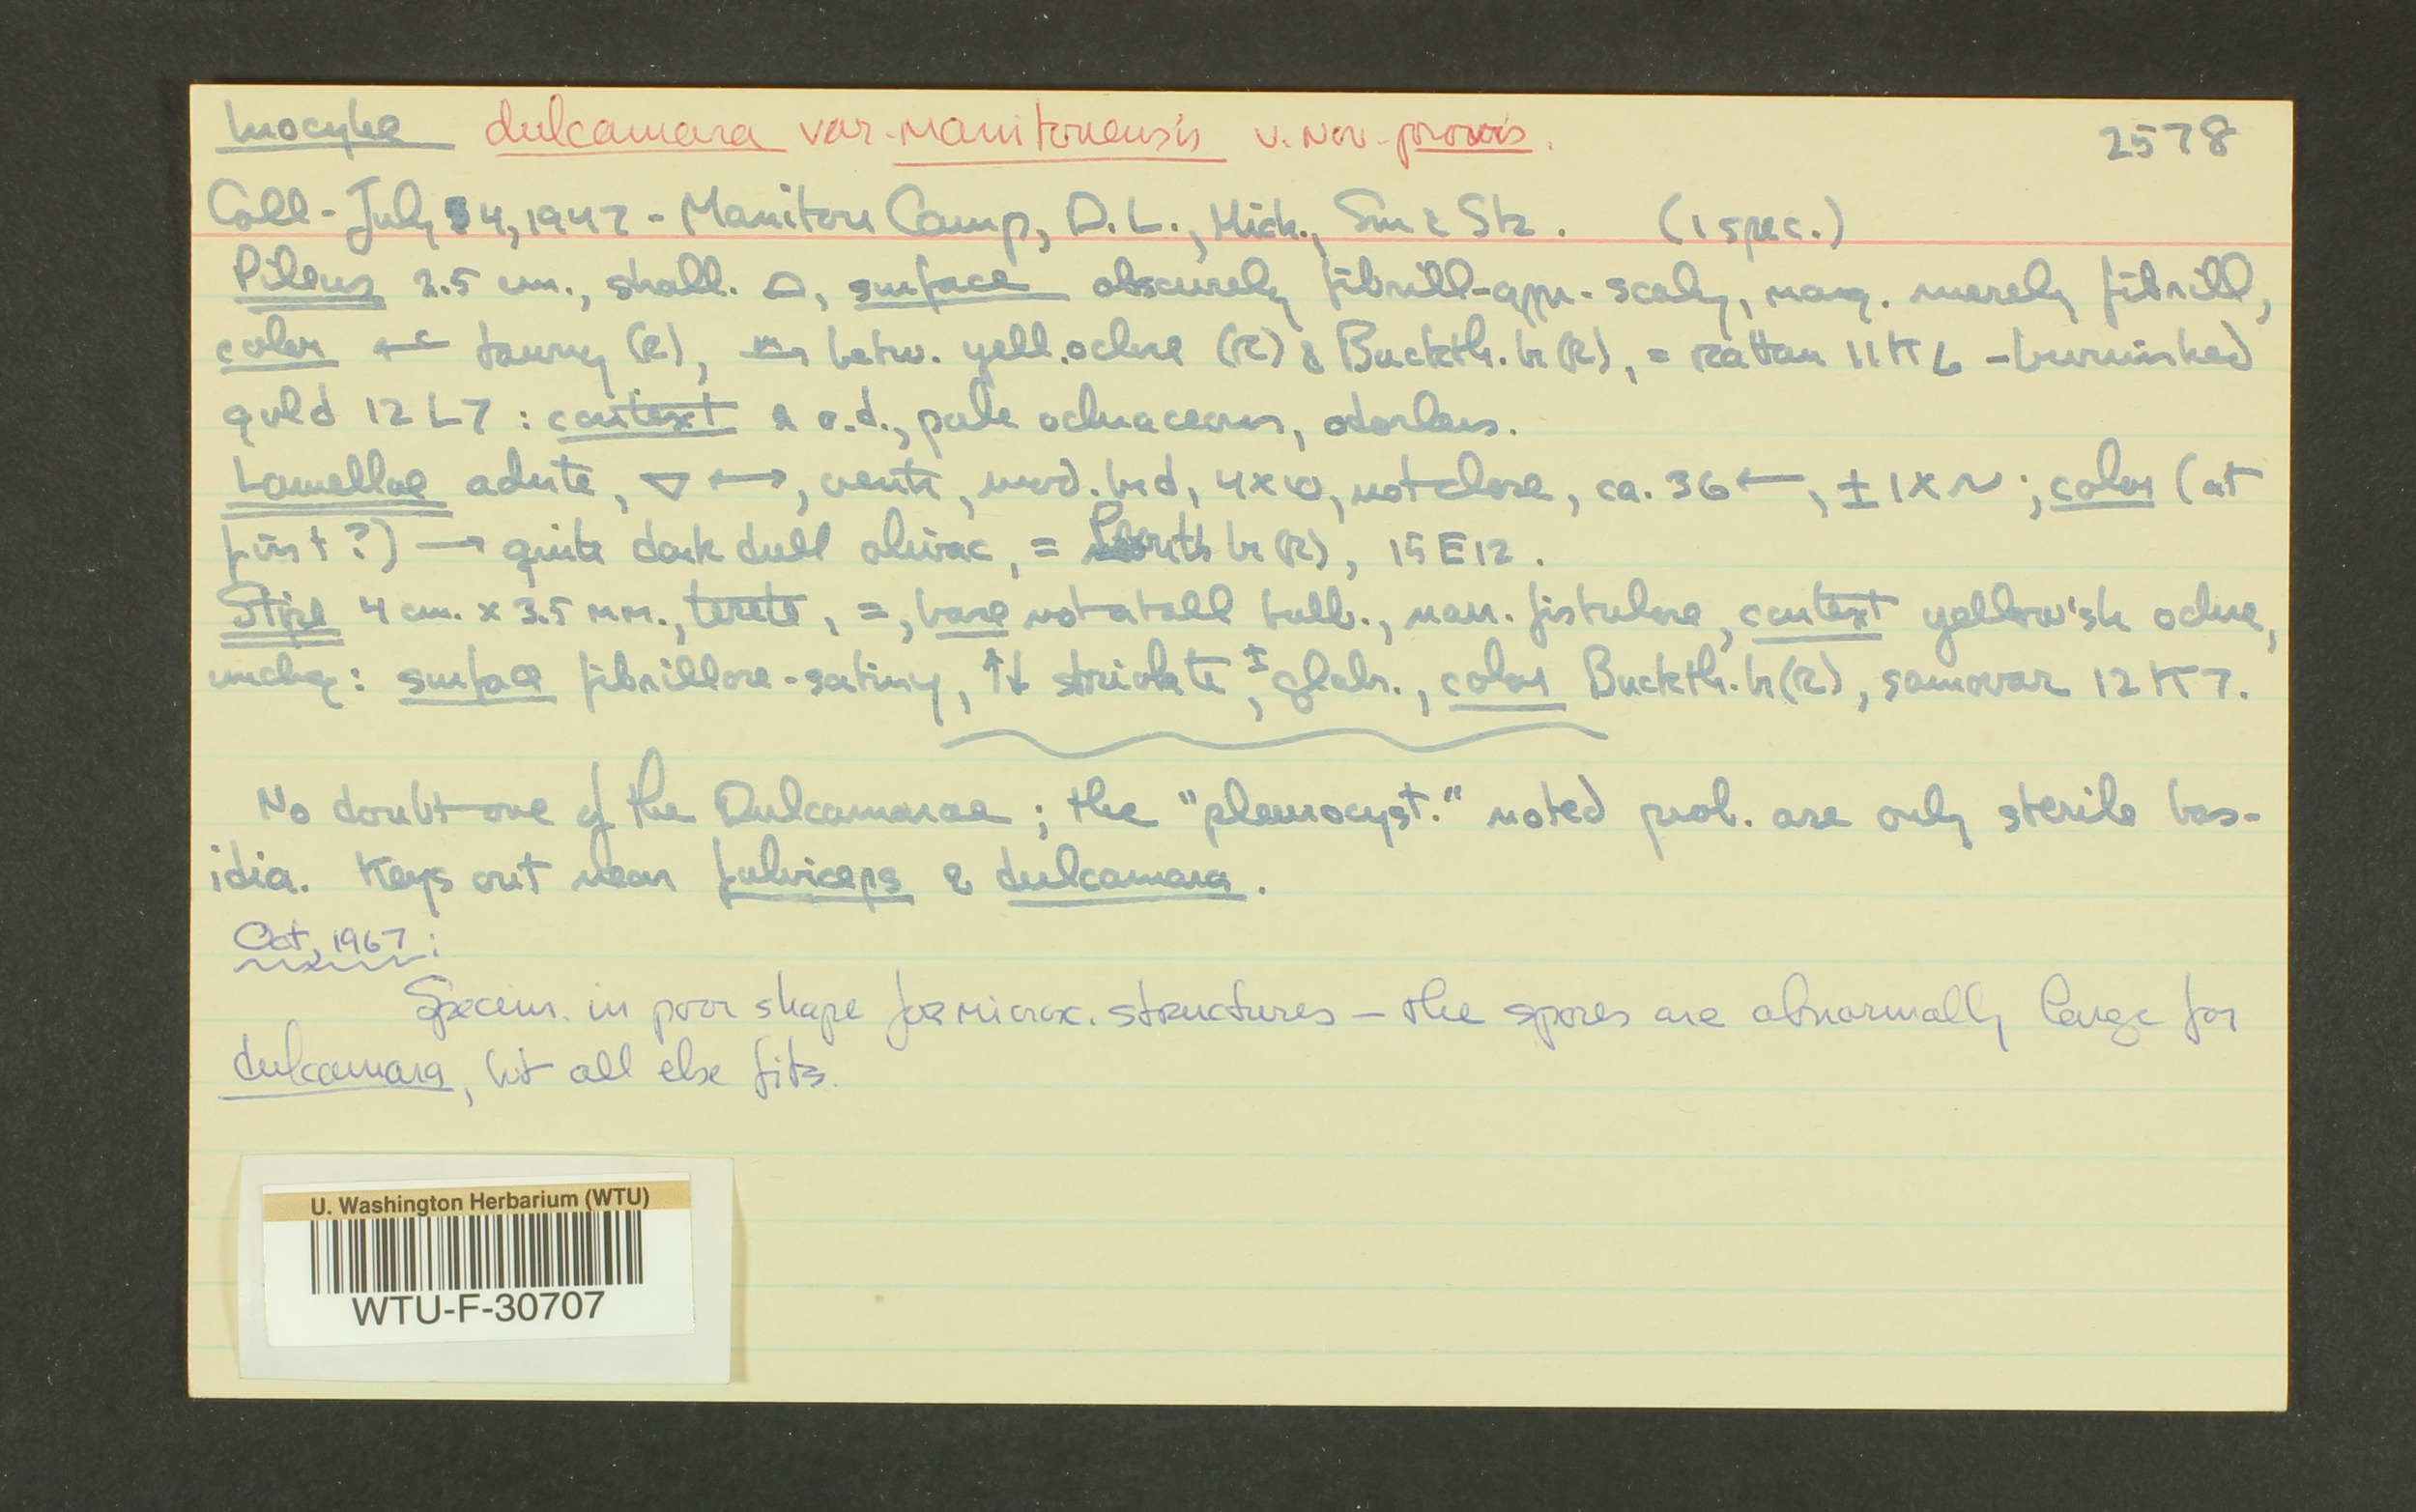 Inocybe dulcamara var. manitouensis v. nov. provis. 2578
Coll - July 4, 1947 - Manitou Camp, D.L., Mich., Sm & Stz. (1 spec.)
Pileus 2.5 cm., shall. ⌓, surface obscurely fibrill-appr.-scaly, marg. merely fibrill,
color ← tawny (R), betw. yell. ochre (R) & Buckth. br (R), = rattan 11K6 - burnished
gold 12L7 : context o.d., pale ochraceous, odorless.
Lamellae adnate, ▽ ⟷, ventr, mod. brd, 4x10, not close, ca. 36 ←, ± 1x ~; color (at
first?) → quite dark dull olivac, = Prouts br (R), 15E12.
Stipe 4 cm. x 3.5 mm., terete, =, base not at all bulb., narr. fistulose, context yellow'sh ochre,
unchg: surface fibrillose-satiny, ↑↓ striolate, ± glabr., color Buckth. br (R), samovar 12K7.
No doubt one of the Dulcamarae; the "pleurocyst." noted prob. are only sterile bas-
idia. Keys out near fulviceps & dulcamara.
Oct, 1967:
Specim. in poor shape for microsc. structures - the spores are abnormally large for
dulcamara, but all else fits.
U. Washington Herbarium (WTU)
WTU-F-30707